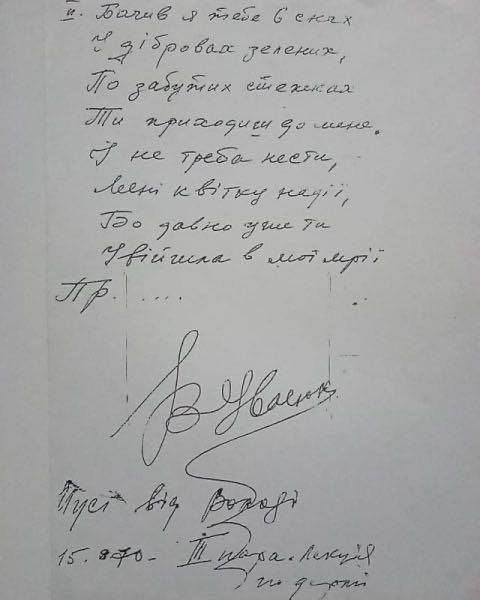 II. Бачив я тебе в снах
У дібровах зелених,
По забутих стежках
Ти приходиш до мене.
І не треба нести,
Мені квітку надії,
Бо давно уже ти
Увійшла в мої мрії
Пр. ....
В Івасюк
Пусі від Володі
15. 70- III пара. Лекція
по